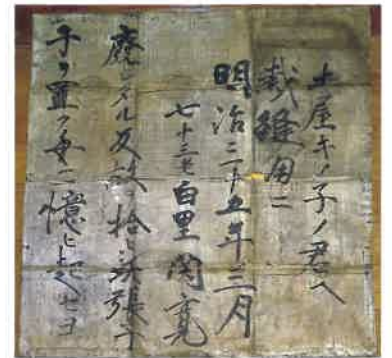 土屋キノ子ノ君へ
裁縫用ニ
明治三十五年三月
七十三老白里 関寛
廃レタル反故拾ヒ張テ
子ヲ置ク ニ憶ヒ起セヨ